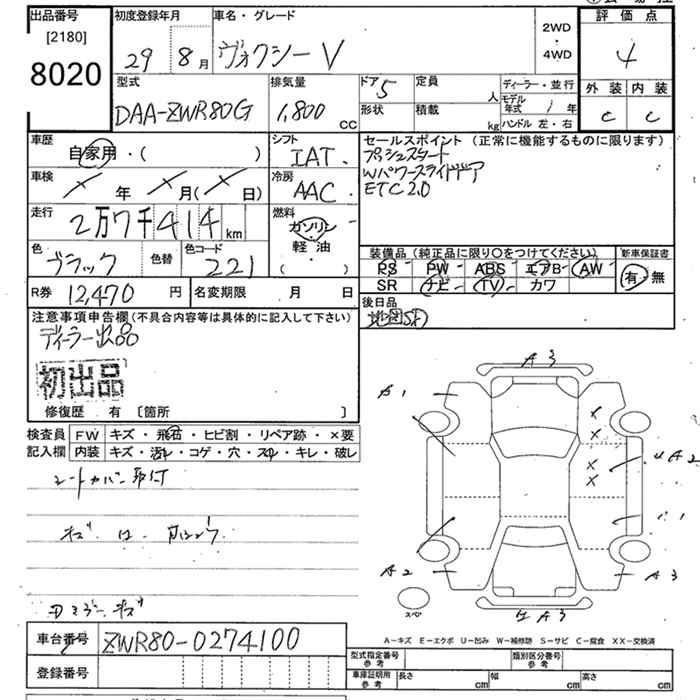 出品番号
[2180]
8020
初度登録年月
29 8月
車名・グレード
ヴォクシー V
2WD
・
4WD
評価点
4
外装 内装
C C
型式
DAA-ZWR80G
排気量
1,800 cc
ドア 5
形状
定員 人
積載 kg
ディーラー・並行
モデル年式 / 年
ハンドル 左・右
車歴
自家用・( )
シフト
IAT.
セールスポイント(正常に機能するものに限ります)
プッシュスタート
Wパワースライドドア
ETC2.0
車検
× 年 × 月(× 日)
冷房
AAC
走行
2万7千414 km
燃料
ガソリン
軽油
( )
色
ブラック
色替
色コード
221
装備品(純正品に限り○をつけてください)
新車保証書
PS PW ABS エアB AW
SR ナビ TV カワ
有・無
R券 12,470 円
名変期限 月 日
後日品
地図SD
注意事項申告欄(不具合内容等は具体的に記入して下さい)
ディーラー出品
初出品
修復歴 有 [箇所 ]
検査員記入欄
FW キズ・飛石・ヒビ割・リペア跡・×要
内装 キズ・汚レ・コゲ・穴・スレ・キレ・破レ
シートカバー取付
A3
A2
A3
A3
スペア
A-キズ E-エクボ U-凹み W-補修跡 S-サビ C-腐食 XX-交換済
車台番号 ZWR80-0274100
登録番号
型式指定番号 参考
類別区分番号 参考
車庫証明用 参考
長さ cm 幅 cm 高さ cm